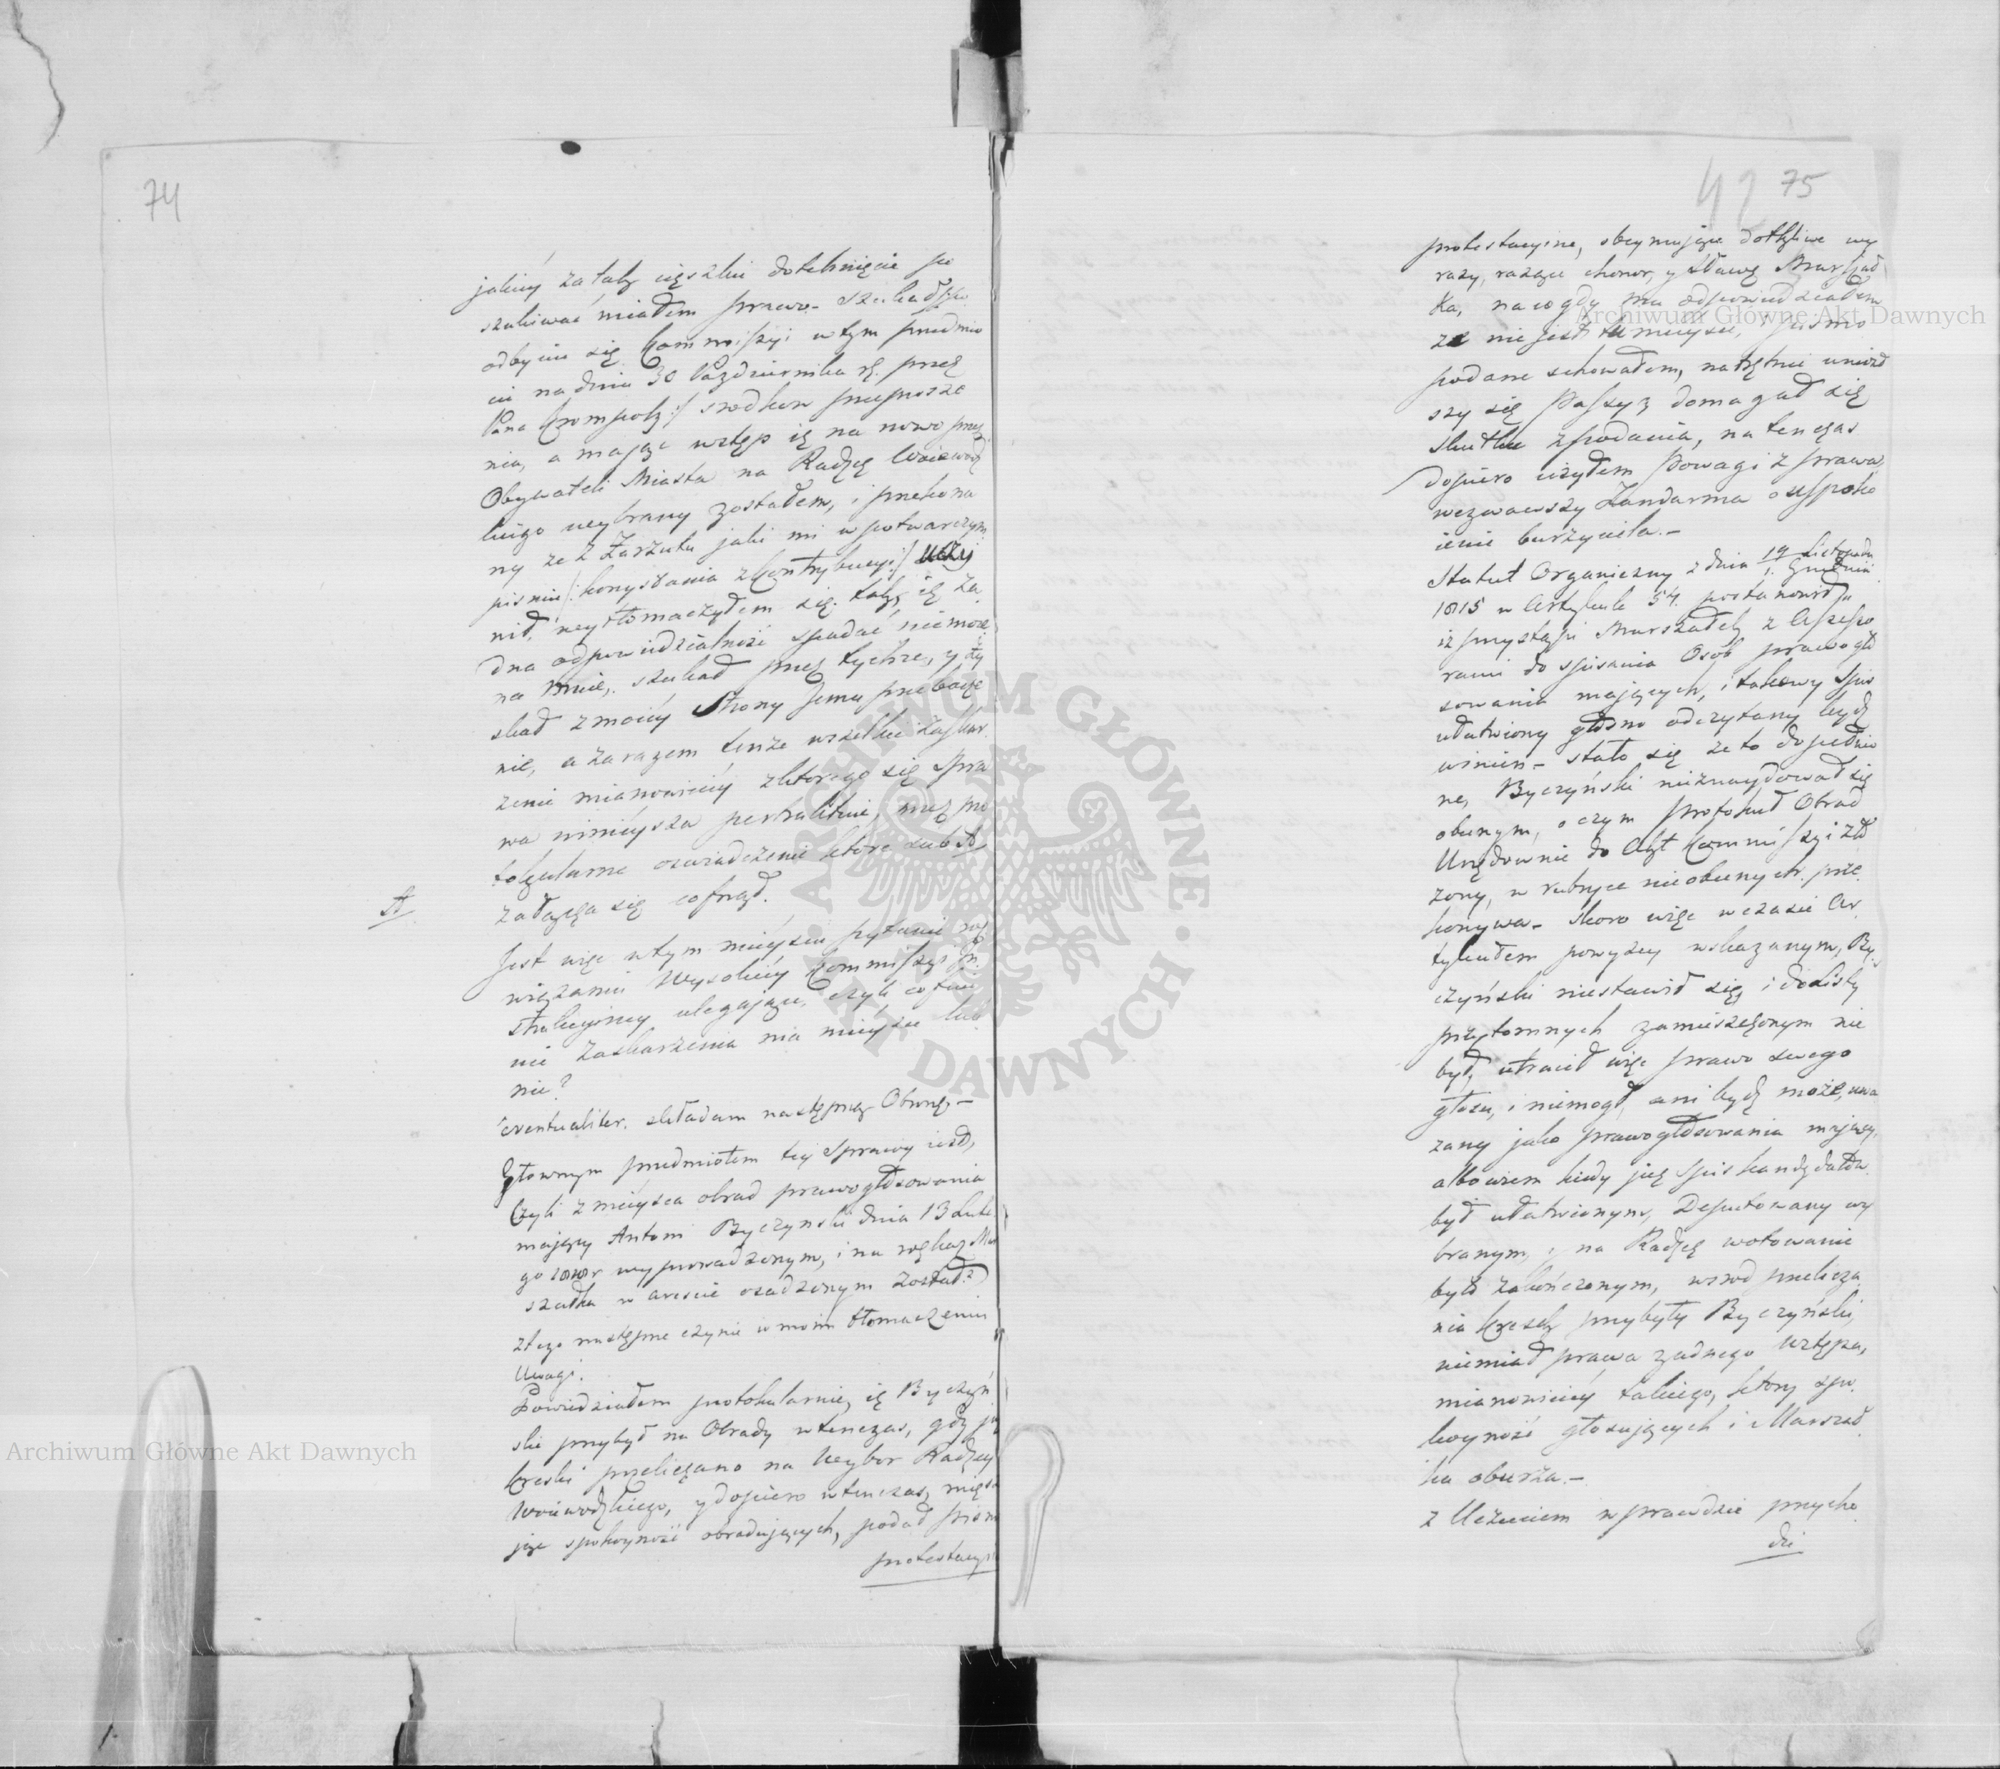 74
jakiéy za taką cięszkie dotchnięcie po
szukiwać miałem prawo. – szukał po
odbyciu się Commissyi w tym przedmio
cie na dniu 30 Pazdziernika rż. przez
Pana środkow przeprosze
nia, a mając wzgląd iż na nowo przez
Obywateli Miasta na Radzcę Woiewodz
kiego wybrany zostałem, i przekona
ny ze z Zarzutu jaki mi w potwarczym
pismie /: korzystania z Kontrybucyi :/ uczy
nił, wytłomaczyłem się. także iż ża
dna odpowiedzialność spadać niemoże
na mnie, szukał przez tychże, y zy
skał z moiéy strony Jemu przebacze
nie, a zarazem tenże wszelkie zaskar
żenie mianowiciéy z ktorego się spra
wa ninieysza pertraktuie, przez pro
tokularne oswiadczenie ktore sub A
załącza się cofnął.
A
Jest więc w tym mieyscu pytanie roz
wiązaniu Wysokiéy Kommissyi
ulegaiące, czyli cofnię
cie Zaskarzenia ma mieysce lub
nie?
eventualiter. składam następną Obronę –
Głownym przedmiotem tey Sprawy iest,
Czyli z mieysca obrad prawo głosowania
maiący Antoni Byczynski dnia 13 Lute
go 1818 r wyprowadzonym, i na rozkaz Mar
szałka w areście osadzonym został?
z tego następne czynie w moim tłomaczeniu
Uwagi.
Powiedziałem protokularnie, iż Byczyń
ski przybył na Obrady wtenczas, gdy już
kreski przeliczano na Wybor Radzcy
Woiewodzkiego, y dopiero wtenczas, miesza
jąc spokoyność obraduiących, podał pismo
protestacyi
42 75
protestacyine, obeymujące dotkliwe wy
razy, rażące chonor, y sławę Marszał
ka, na co gdy mu odpowiedziałem
ze nie jest tu mieysce, i pismo
podane schowałem, natrętnie uniosł
szy się Passyą domagał się
skutku z podania, na ten czas
dopiero użyłem Powagi z prawa,
wezwawszy Zandarma o uspoko
ienie burzyciela. –
Statut Organiczny z dnia 19 Listopada
1. Grudnia
1815 w Artykule 54. postanowił
iż przystąpi Marszałek z Assesso
rami do spisania Osob prawo gło
sowania mających, i takowy Spis
ułatwiony głosno odczytany bydź
winien – stało się ze to dopełnio
ne, Byczyński nieznaydował się
obecnym, o czym protokuł Obrad
Urzędownie do Akt Kommissyi zło
zony, w rubryce nieobecnych, prze
konywa – skoro więc w czasie Ar
tykułem powyzey wskazanym, By
czyński niestawił się, i do Listy
przytomnych zamieszczonym nie
był, utracił więc prawo swego
głosu, i niemogł, ani bydź może, uwa
zany jako prawo głosowania mający,
albowiem kiedy juz Spis kandydatów
był ułatwionym, Deputowany wy
branym, y na Radzcę wotowanie
było zakończonym, wsrod przelicza
nia kresek przybyły Byczyński,
niemiał prawa zadnego Wstępu,
mianowiciéy takiego, ktory spo
koyność głosujących i Marszał
ka oburza. –
z Uczuciem wprawdzie przycho
dzi
Archiwum Główne Akt Dawnych
Archiwum Główne Akt Dawnych
ARCHIWUM GŁÓWNE AKT DAWNYCH